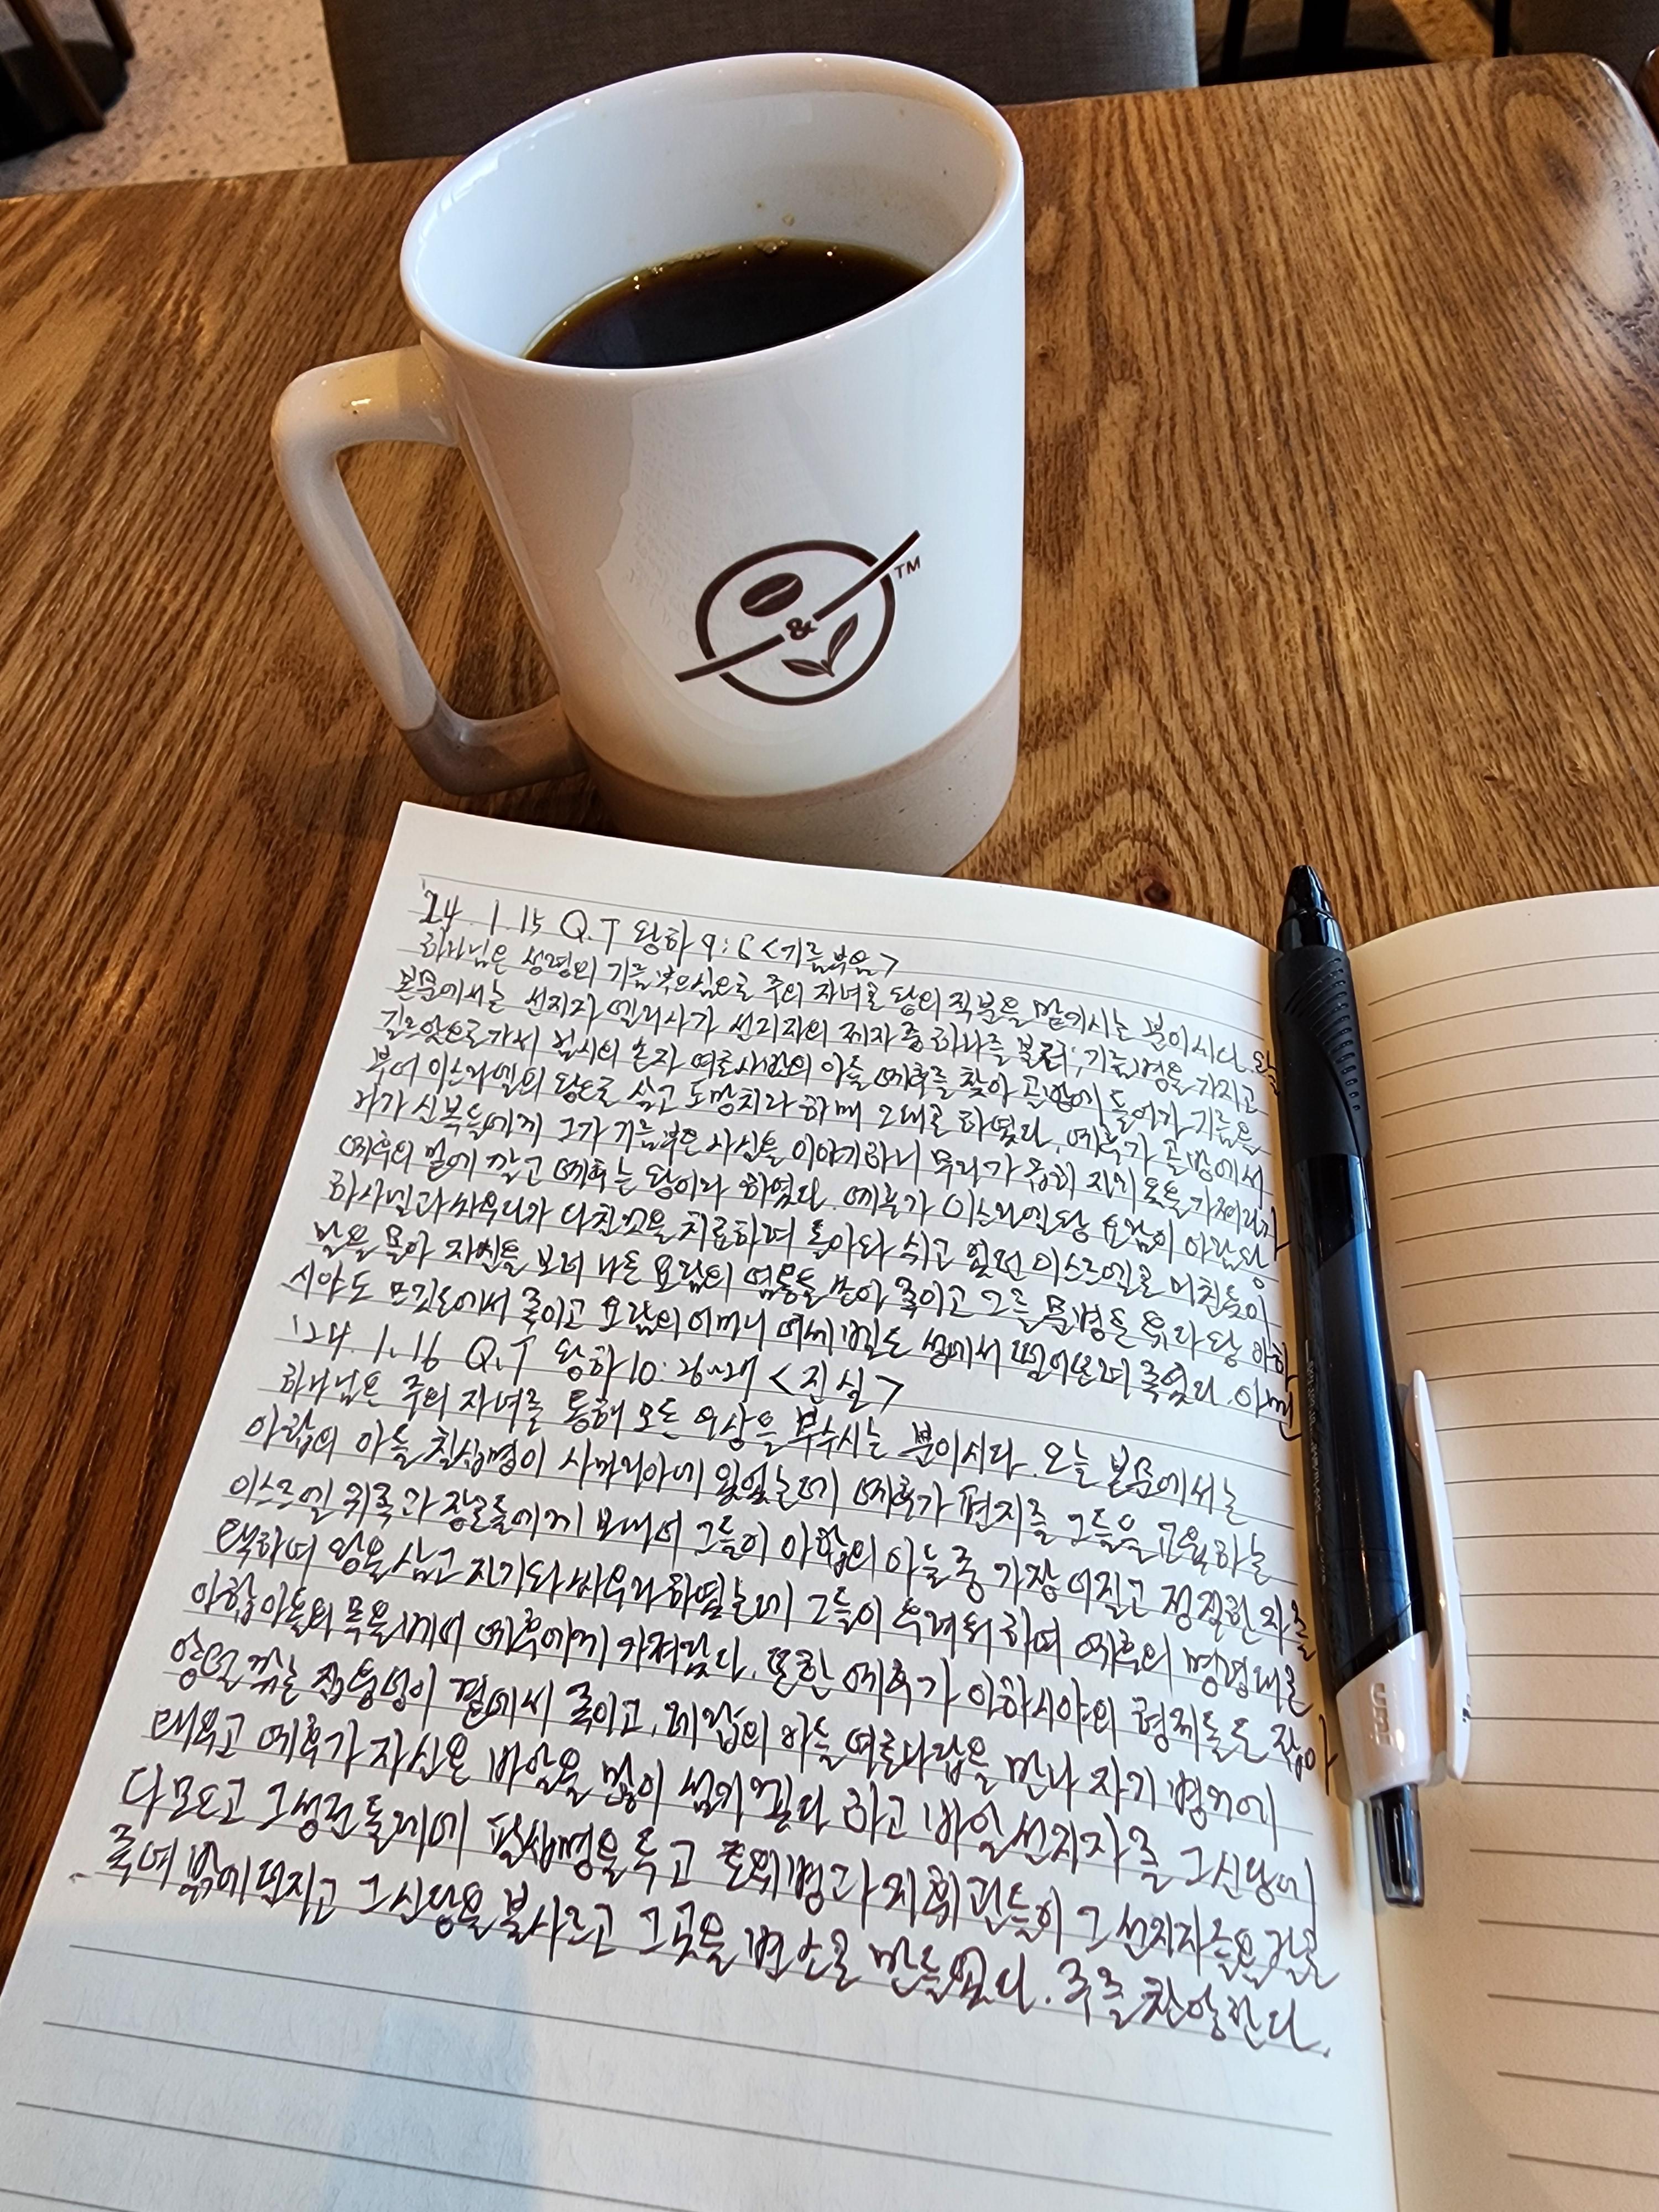 &
TM
'24. 1. 15 Q.T 왕하 9:6 <기름부음>
하나님은 성령의 기름부으심으로 주의 자녀로 왕의 직분을 맡기시는 분이시다. 오늘
본문에서는 선지자 엘리사가 선지자의 제자 중 하나를 불러, 기름병을 가지고
길르앗으로 가서 님시의 손자 여호사밧의 아들 예후를 찾아 골방에 들어가 기름을
부어 이스라엘의 왕으로 삼고 도망치라 하매 그대로 하였다. 예후가 골방에서
나가 신복들에게 그가 기름부은 사실을 이야기하니 무리가 급히 자기 옷을 가져다가
예후의 밑에 깔고 예후는 왕이라 하였다. 예후가 이스라엘 왕 요람이 아람 왕
하사엘과 싸우다가 다친 것을 치료하며 돌아와 쉬고 있던 이스르엘로 미친듯이
말을 몰아 자신을 보러 나온 요람의 염통을 쏘아 죽이고 그를 문병 온 유다 왕 아하
시야도 므깃도에서 죽이고 요람의 어머니 이세벨도 창에서 떨어뜨려 죽였다. 아멘
'24. 1. 16 Q.T 왕하 10:26~27 <진실>
하나님은 주의 자녀를 통해 모든 우상을 부수시는 분이시다. 오늘 본문에서는
아합의 아들 칠십명이 사마리아에 있었는데 예후가 편지를 그들을 교육하는
이스르엘 귀족과 장로들에게 보내어 그들이 아합의 아들 중 가장 어질고 정직한 자를
택하여 왕을 삼고 자기와 싸우라 하였는데 그들이 두려워 하며 예후의 명령대로
아합 아들의 목을 베어 예후에게 가져갔다. 또한 예후가 아하시야의 형제들도 잡아
양털 깎는 집 웅덩이 곁에서 죽이고, 레갑의 아들 여호나답을 만나 자기 병거에
태우고 예후가 자신은 바알을 많이 섬기겠다 하고 바알 선지자를 그 신당에
다 모으고 그 성전 둘레에 팔십명을 두고 호위병과 지휘관들이 그 선지자들을 칼로
죽여 밖에 던지고 그 신당을 불사르고 그곳을 변소로 만들었다. 주를 찬양한다.
uni